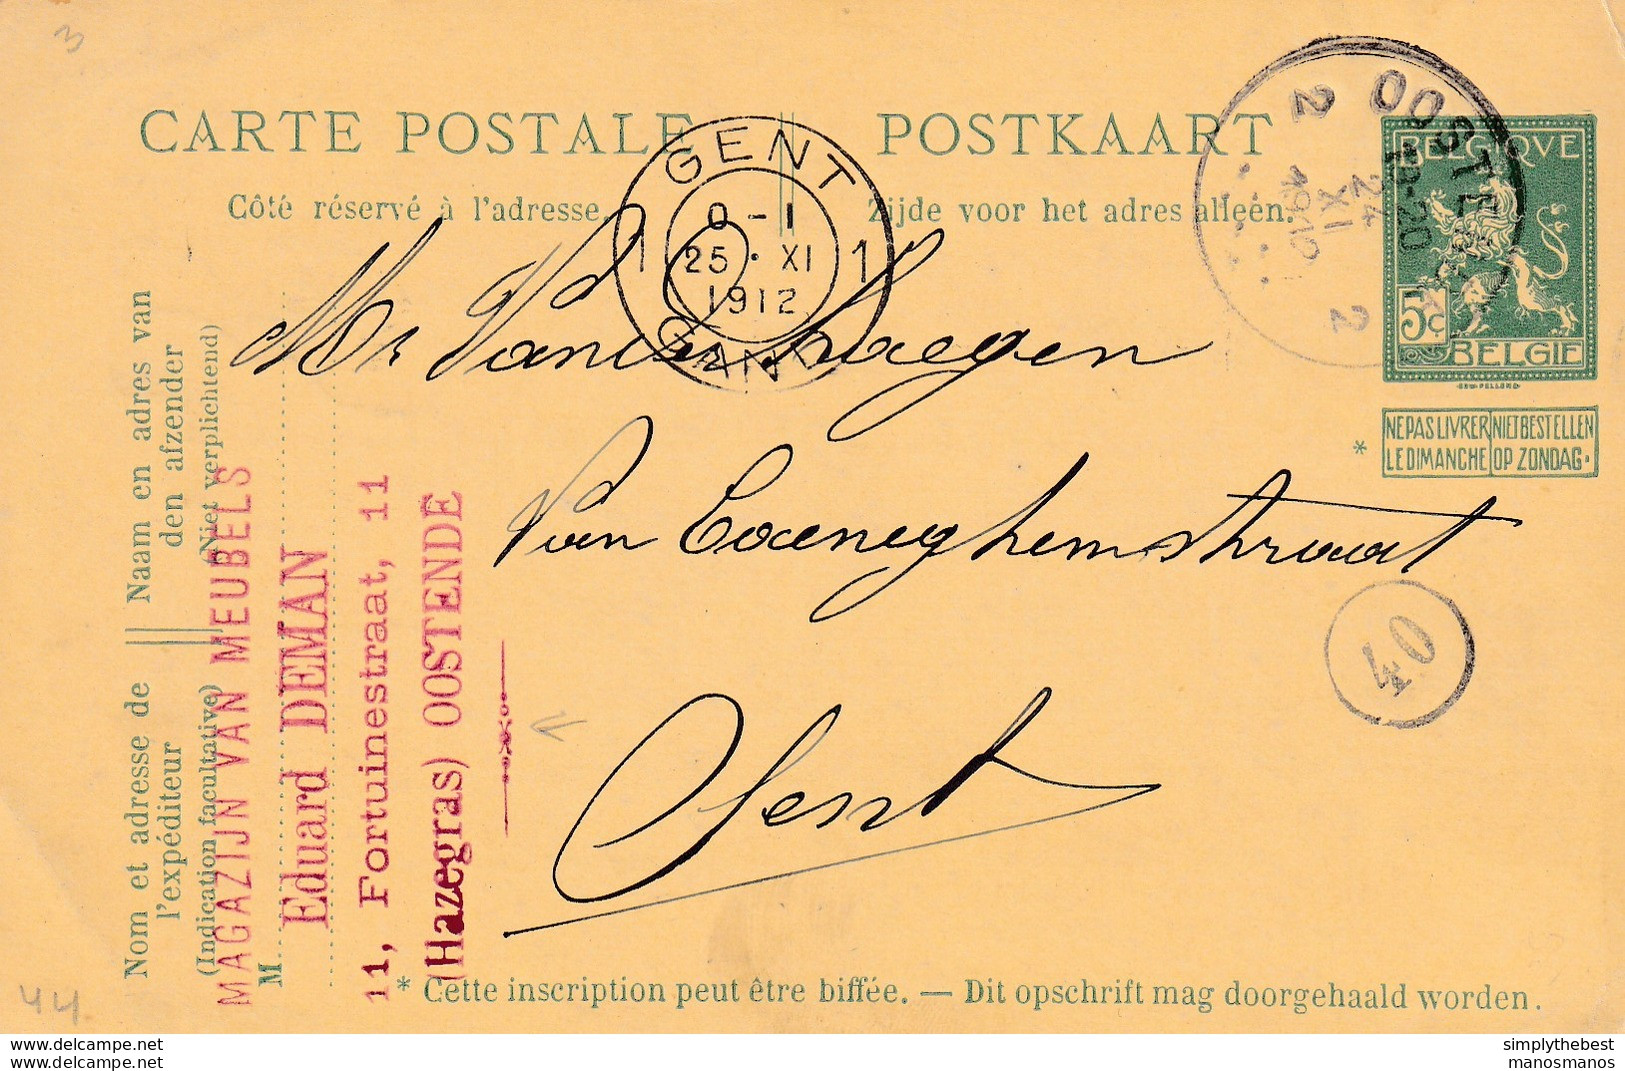 3
CARTE POSTALE
POSTKAART
Côté réservé à l'adresse.
Zijde voor het adres alleen.
GENT
0-1
25 · XI
1912
1 1
GAND
OOSTENDE
2 2
24
XI
BELGIQVE
5c
BELGIE
NE PAS LIVRER LE DIMANCHE
NIET BESTELLEN OP ZONDAG.
*
Mr Vander Haegen
Van Coeneghemstraat
Gent
04
Naam en adres van
den afzender
(Niet verplichtend)
Nom et adresse de
l'expéditeur
(Indication facultative)
M
MAGAZIJN VAN MEUBELS
Eduard DEMAN
11, Fortuinestraat, 11
(Hazegras) OOSTENDE
* Cette inscription peut être biffée. — Dit opschrift mag doorgehaald worden.
44
®Copyright DELCAMPE.net
®Copyright DELCAMPE.net
simplythebest
manosmanos